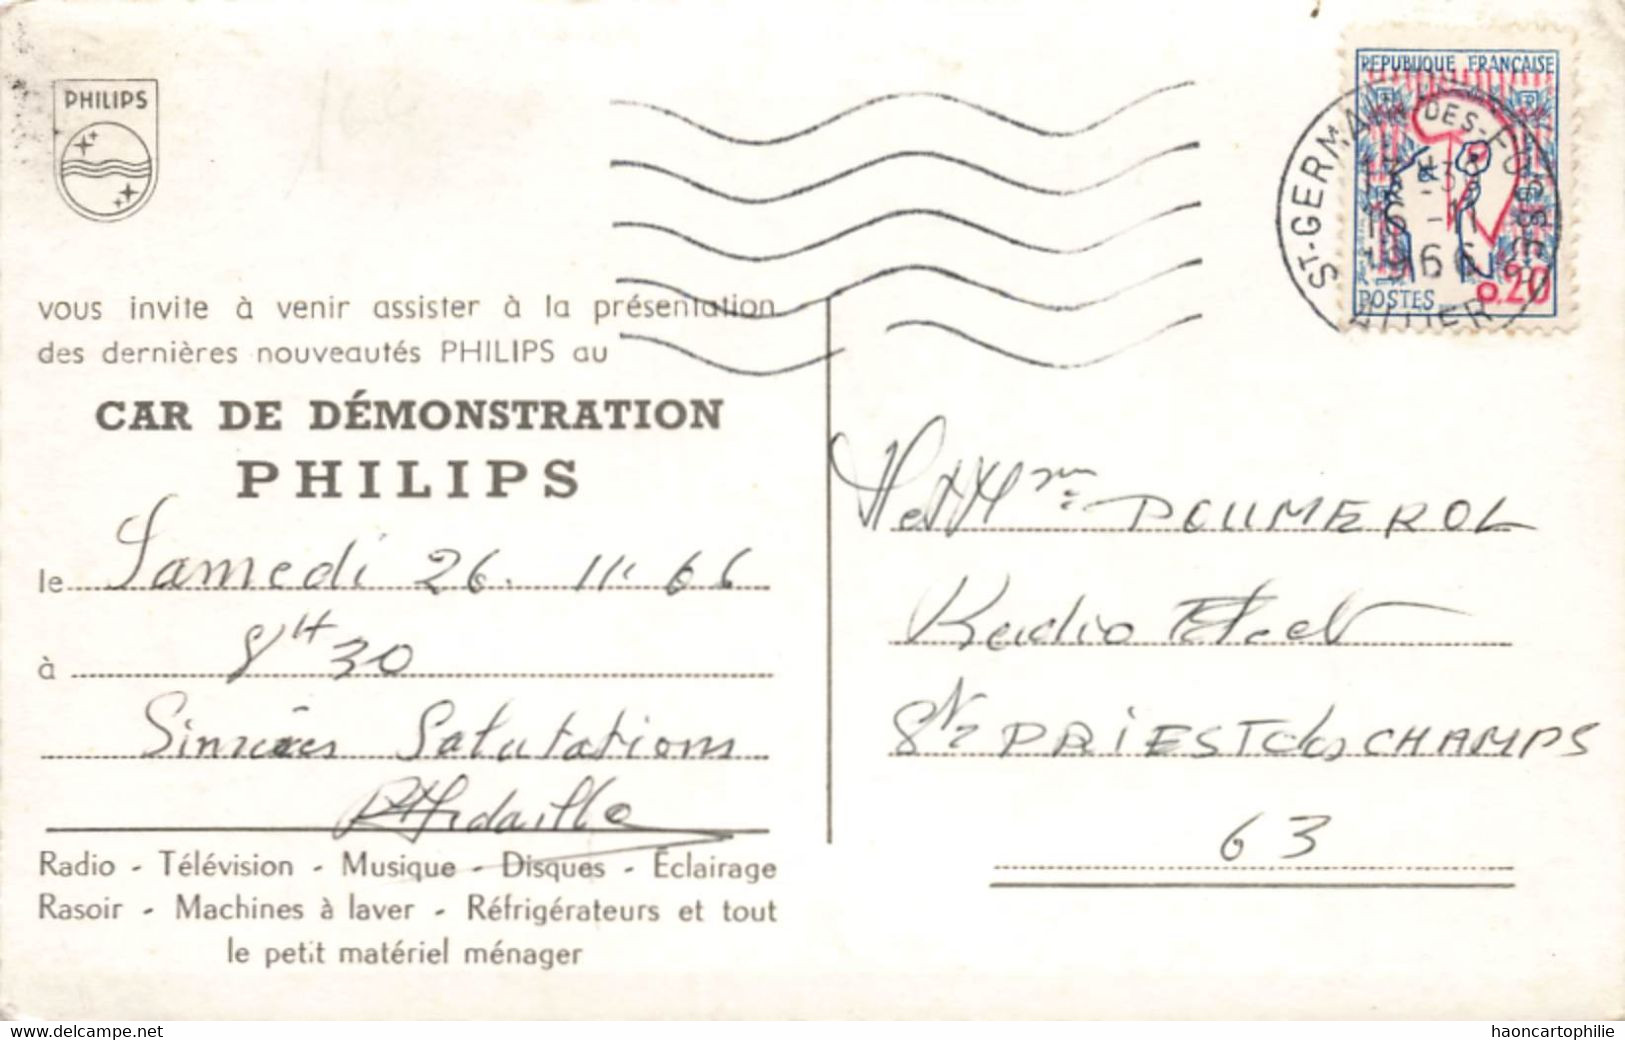 PHILIPS
vous invite à venir assister à la présentation
des dernières nouveautés PHILIPS au
CAR DE DÉMONSTRATION
PHILIPS
le Samedi 26. 11. 66
à 8H30
Sincères Salutations
Radio - Télévision - Musique - Disques - Éclairage
Rasoir - Machines à laver - Réfrigérateurs et tout
le petit matériel ménager
REPUBLIQUE FRANÇAISE
POSTES
0,20
ST-GERMAIN-DES-FOSSES
16 -11
1966
ALLIER
Mr et Mme POUMEROL
Radio Elect
St PRIEST des CHAMPS
63
haoncartophilie